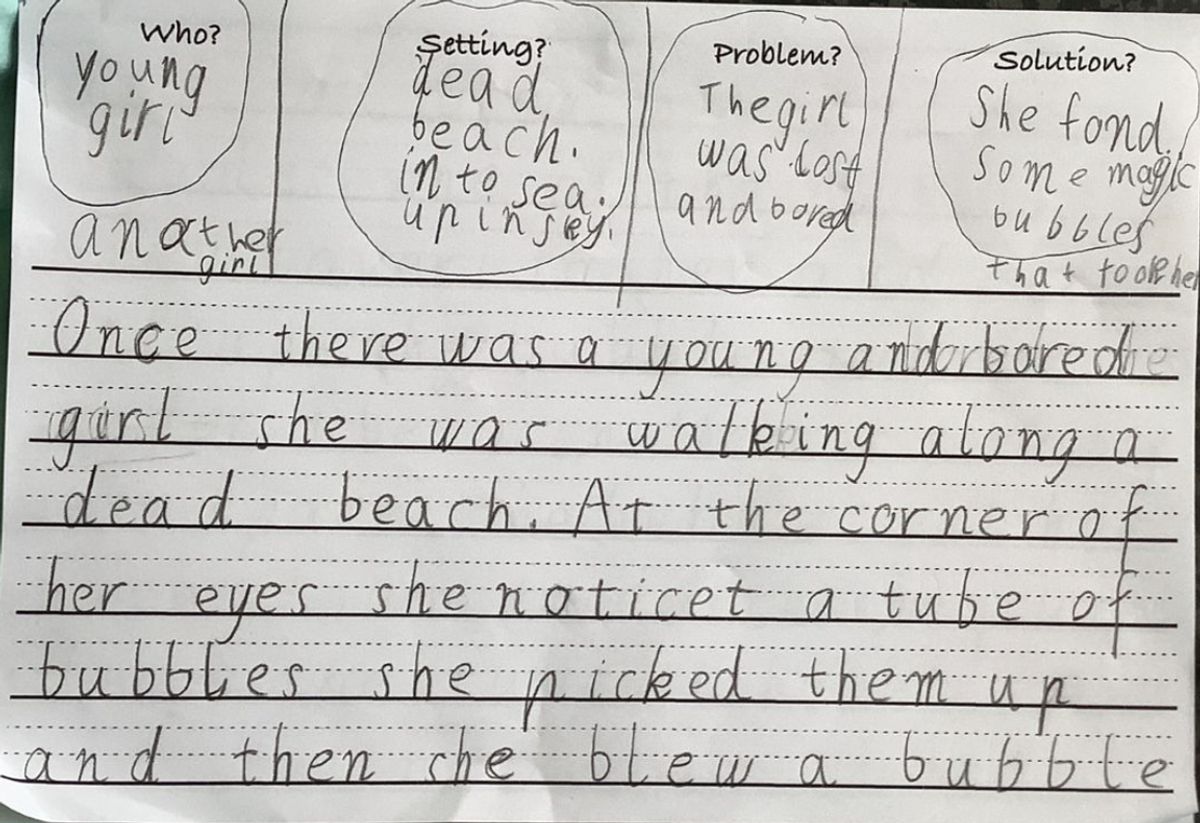 Who?
young
girl
another
girl
Setting?
dead
beach.
in to sea.
up in skey.
Problem?
The girl
was lost
and bored
Solution?
She fond
some magic
bubbles
that took her
Once there was a young and bored
girl she was walking along a
dead beach. At the corner of
her eyes she noticet a tube of
bubbles she picked them up
and then she blew a bubble